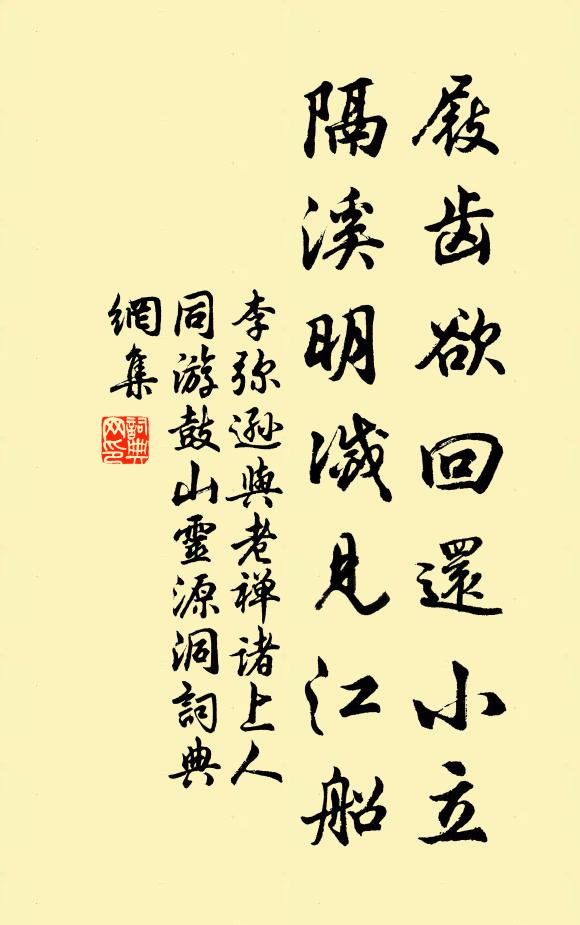 屐齿欲回還小立
隔溪明滅見江船
李弥遜與老禅诸上人
同游鼓山靈源洞詞典
網集
詞典
网印